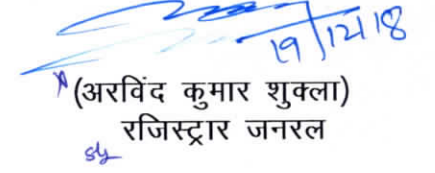 19/12/18
(अरविंद कुमार शुक्ला)
रजिस्ट्रार जनरल